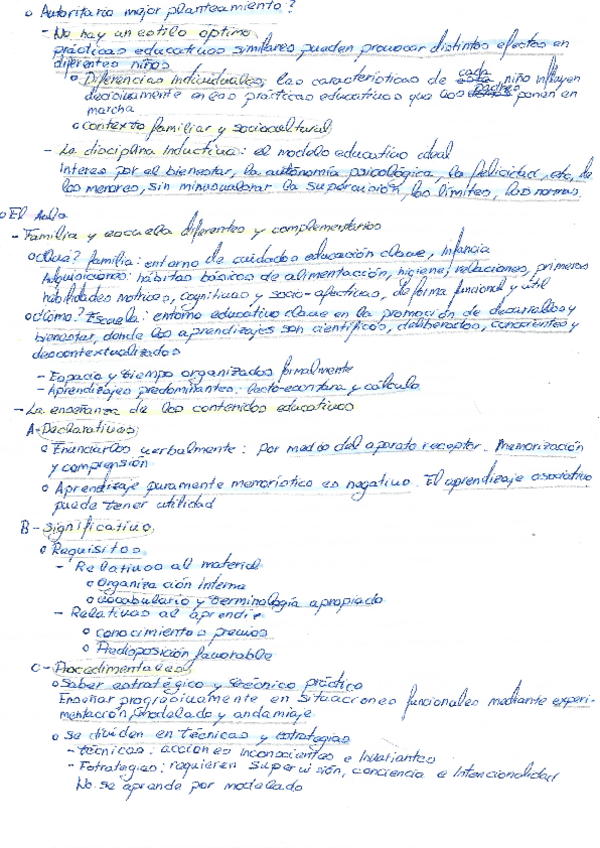 o Autoritario mejor planteamiento?
- No hay un estilo optimo
prácticas educativas similares pueden provocar distintos efectos en
diferentes niños
o Diferencias individuales: las características de cada niño influyen
decisivamente en las prácticas educativas que los padres ponen en
marcha
o contexto familiar y sociocultural
- La disciplina inductiva: el modelo educativo ideal
Interes por el bienestar, la autonomía psicológica, la felicidad, etc, de
los menores, sin minusvalorar la supervisión, los límites, las normas
o El Aula
- Familia y escuela diferentes y complementarios
o Qué? familia: entorno de cuidados educación clave, Infancia
Adquisiciones: hábitos básicos de alimentación, higiene, relaciones, primeras
habilidades motrices, cognitivas y socio-afectivas, de forma funcional y útil
o cómo? Escuela: entorno educativo clave en la promoción de desarrollo y
bienestar, donde los aprendizajes son científicos, deliberados, conscientes y
descontextualizados
- Espacio y tiempo organizados formalmente
- Aprendizajes predominantes: lecto-escritura y cálculo
- La enseñanza de los contenidos educativos
A- Declarativos:
o Enunciarlos verbalmente: por medio del aparato receptor. Memorización
y comprensión
o Aprendizaje puramente memoristico es negativo. El aprendizaje asociativo
puede tener utilidad
B- Significativo:
o Requisitos
- Relativos al material
o Organización interna
o vocabulario y terminología apropiado
- Relativos al aprendiz
o conocimientos previos
o Predisposición favorable
C- Procedimentales
o Saber estratégico y técnico práctico
Enseñar progresivamente en situaciones funcionales mediante experi-
mentación, modelado y andamiaje
o Se dividen en técnicas y estrategias
- técnicas: acciones inconscientes e Invariantes
- Estrategias: requieren supervisión, conciencia e Intencionalidad
No se aprende por modelado